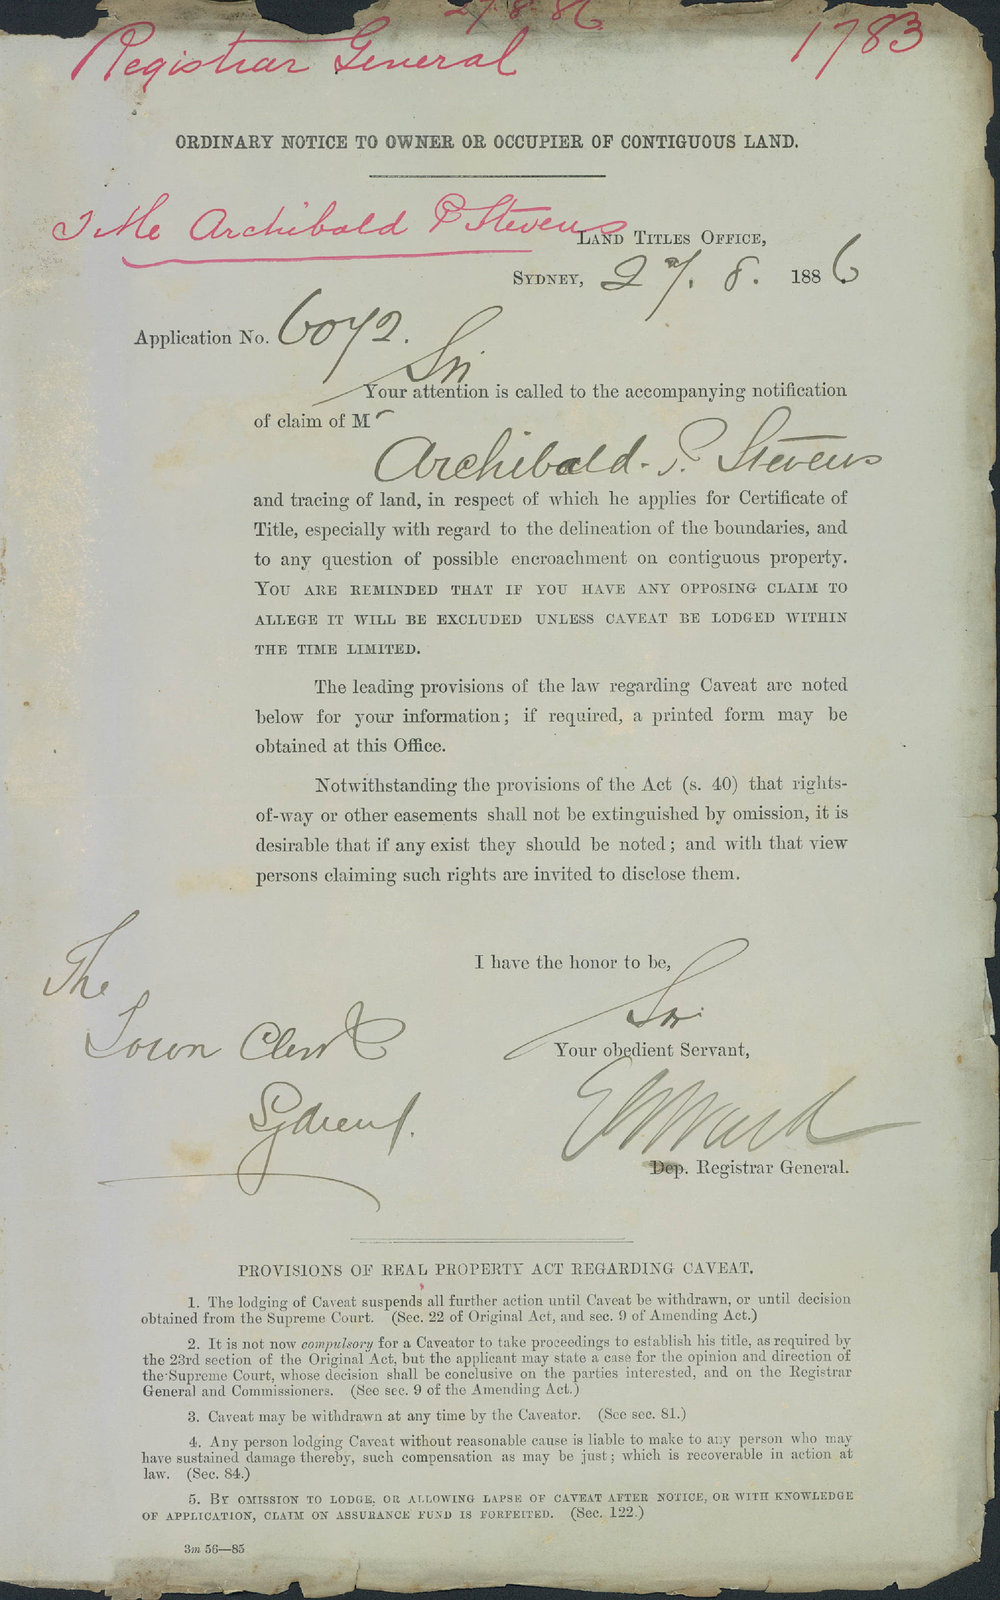 27.8.86
Registrar General
1783
ORDINARY NOTICE TO OWNER OR OCCUPIER OF CONTIGUOUS LAND.
Archibald P Stevens
LAND TITLES OFFICE,
SYDNEY, 27. 8. 1886
Application No. 6072.
Sir
Your attention is called to the accompanying notification
of claim of Mr
Archibald. P. Stevens
and tracing of land, in respect of which he applies for Certificate of
Title, especially with regard to the delineation of the boundaries, and
to any question of possible encroachment on contiguous property.
YOU ARE REMINDED THAT IF YOU HAVE ANY OPPOSING CLAIM TO
ALLEGE IT WILL BE EXCLUDED UNLESS CAVEAT BE LODGED WITHIN
THE TIME LIMITED.
The leading provisions of the law regarding Caveat are noted
below for your information; if required, a printed form may be
obtained at this Office.
Notwithstanding the provisions of the Act (s. 40) that rights-
of-way or other easements shall not be extinguished by omission, it is
desirable that if any exist they should be noted; and with that view
persons claiming such rights are invited to disclose them.
I have the honor to be,
Sir
Your obedient Servant,
The
Town Clerk
Sydney.
E Ward
Dep. Registrar General.
PROVISIONS OF REAL PROPERTY ACT REGARDING CAVEAT.
1. The lodging of Caveat suspends all further action until Caveat be withdrawn, or until decision
obtained from the Supreme Court. (Sec. 22 of Original Act, and sec. 9 of Amending Act.)
2. It is not now compulsory for a Caveator to take proceedings to establish his title, as required by
the 23rd section of the Original Act, but the applicant may state a case for the opinion and direction of
the Supreme Court, whose decision shall be conclusive on the parties interested, and on the Registrar
General and Commissioners. (See sec. 9 of the Amending Act.)
3. Caveat may be withdrawn at any time by the Caveator. (See sec. 81.)
4. Any person lodging Caveat without reasonable cause is liable to make to any person who may
have sustained damage thereby, such compensation as may be just; which is recoverable in action at
law. (Sec. 84.)
5. BY OMISSION TO LODGE, OR ALLOWING LAPSE OF CAVEAT AFTER NOTICE, OR WITH KNOWLEDGE
OF APPLICATION, CLAIM ON ASSURANCE FUND IS FORFEITED. (Sec. 122.)
3m 56—85